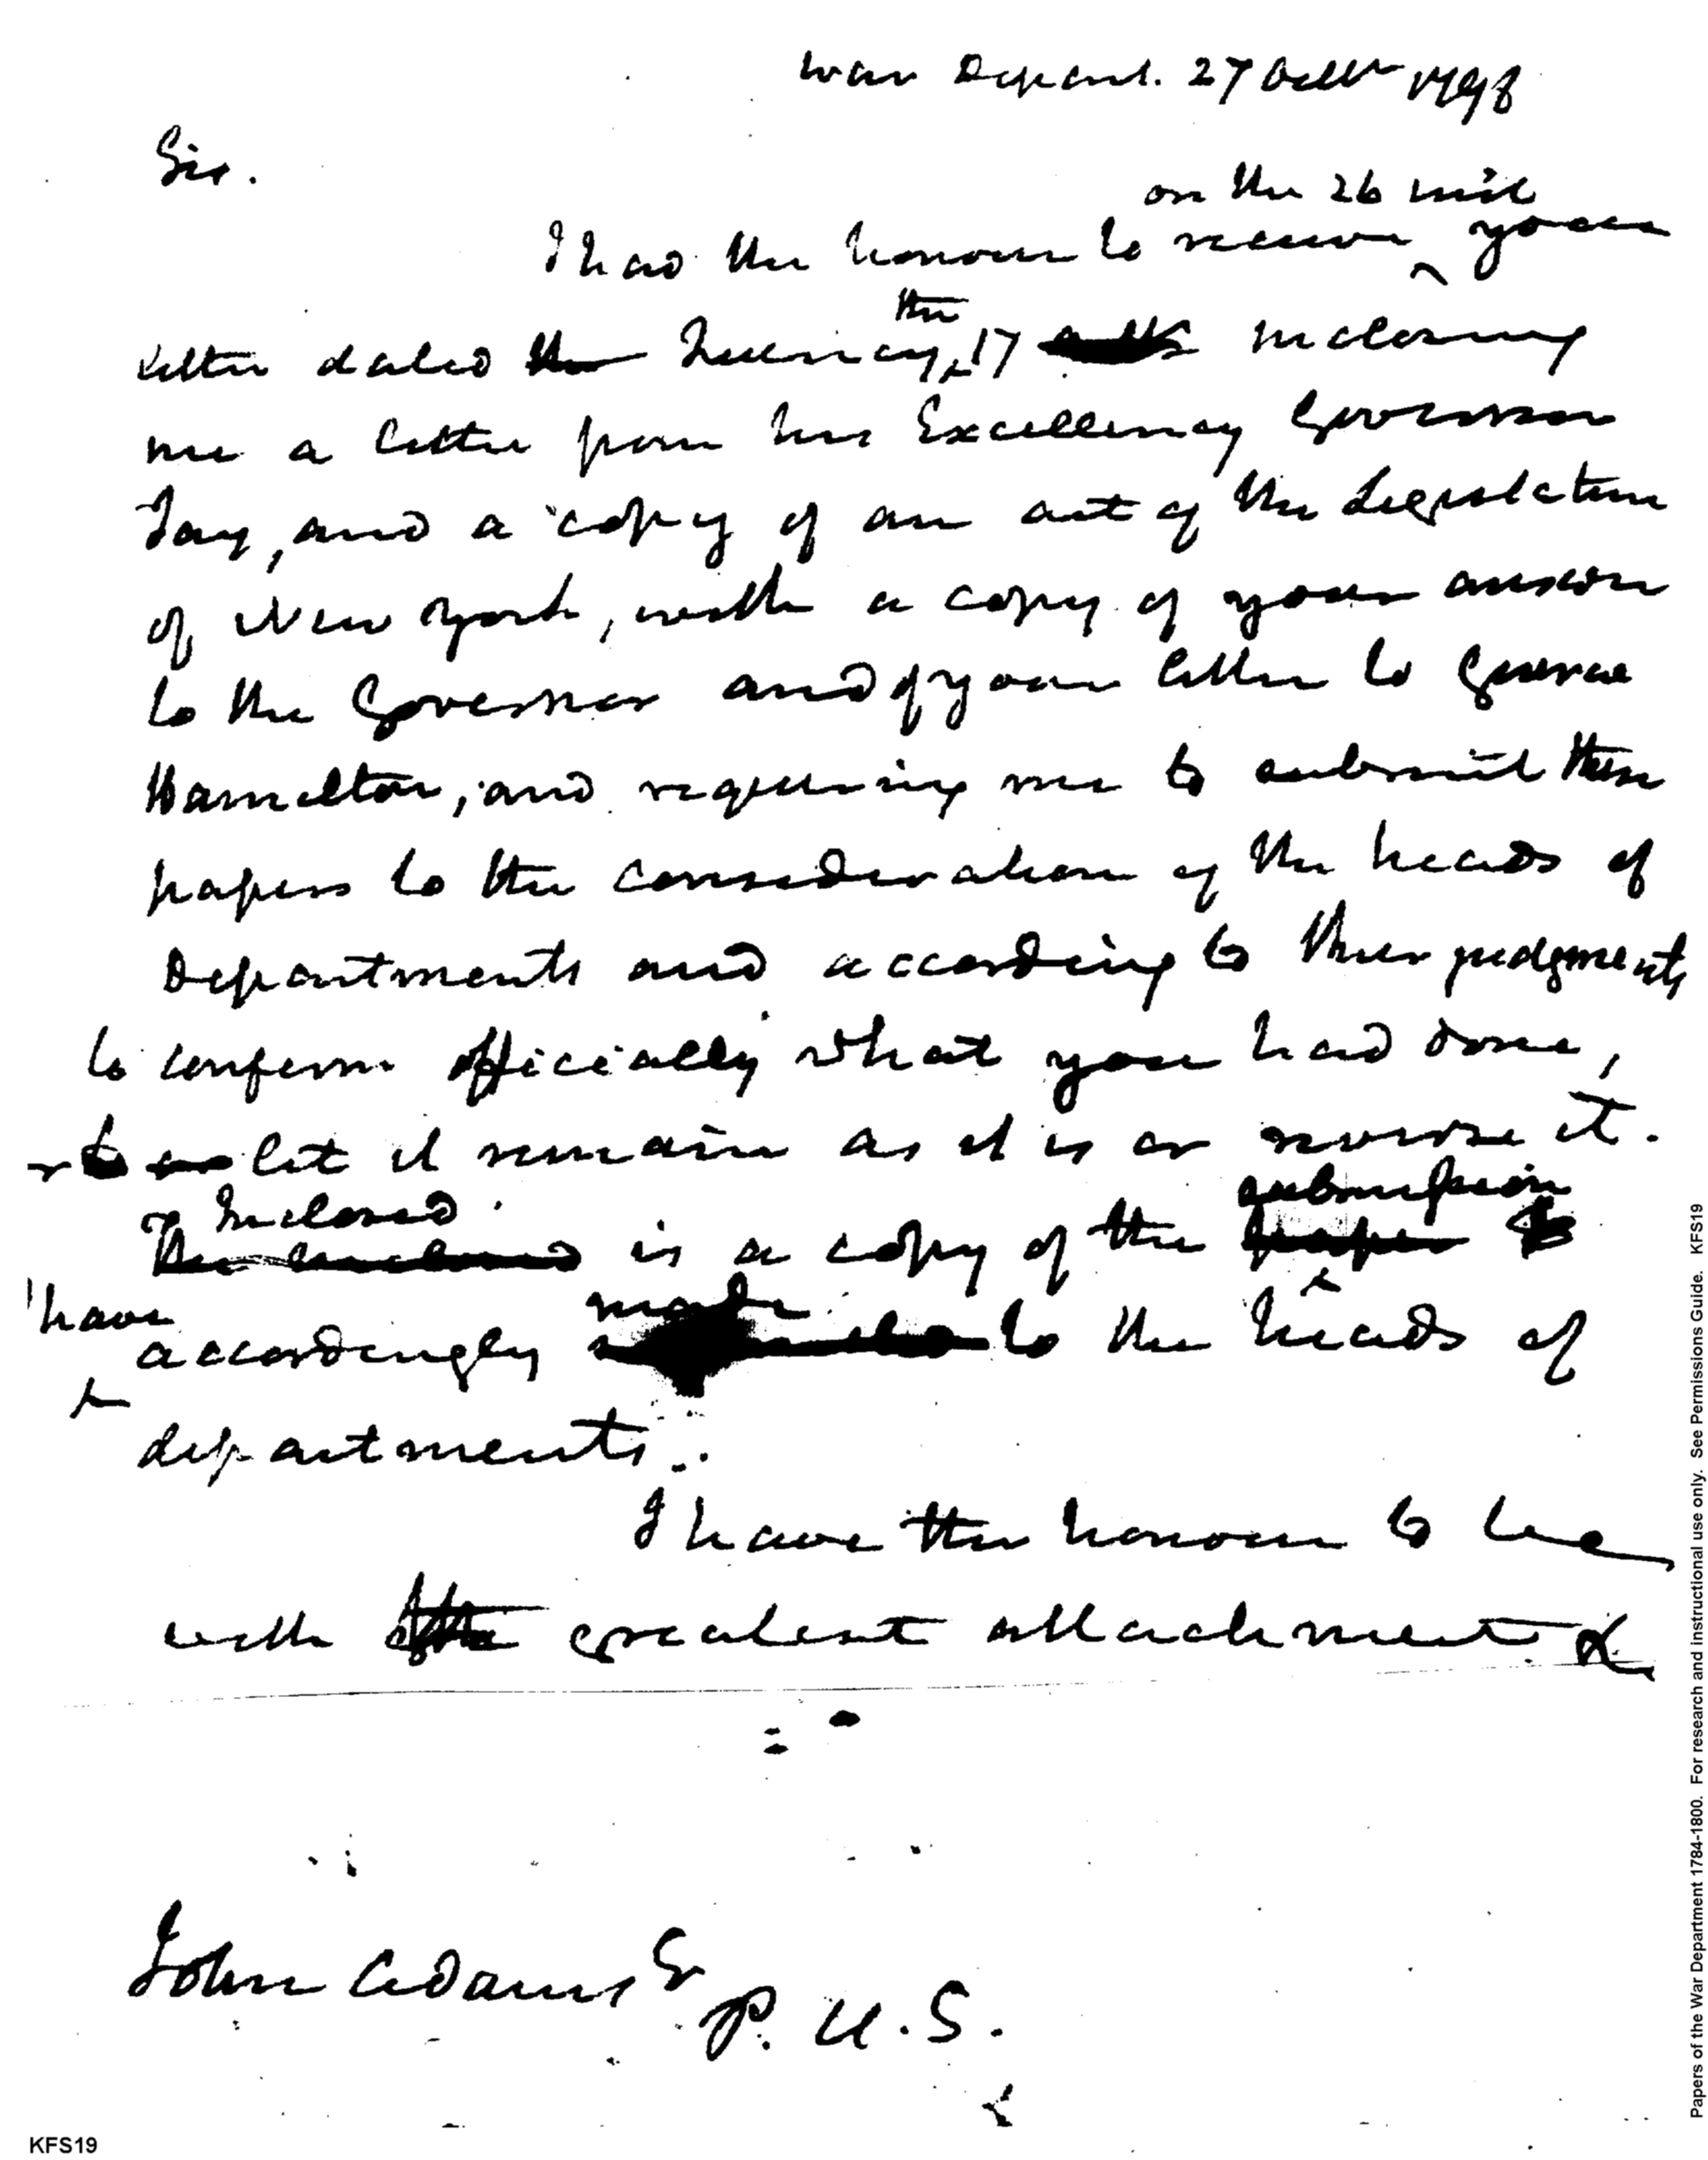 War Depart. 27 Octbr 1798
Sir.
on the 26 inst
I had the honour to receive your
the
letter dated the Quincy 17 inclosing
me a letter from his Excellency Governor
Jay, and a copy of an act of the Legislature
of New York, with a copy of your answer
to the Governor and of your letter to General
Hamilton, and requiring me to submit these
papers to the consideration of the heads of
Departments and according to their judgments
to confirm officially what you had done,
or to let it remain as it is or reverse it.
Inclosed submission
The inclosed is a copy of the paper
I have made
accordingly to the heads of
departments.
I have the honour to be
with the greatest attachment &
John Adams Es
P. U. S.
KFS19
Papers of the War Department 1784-1800. For research and instructional use only. See Permissions Guide. KFS19